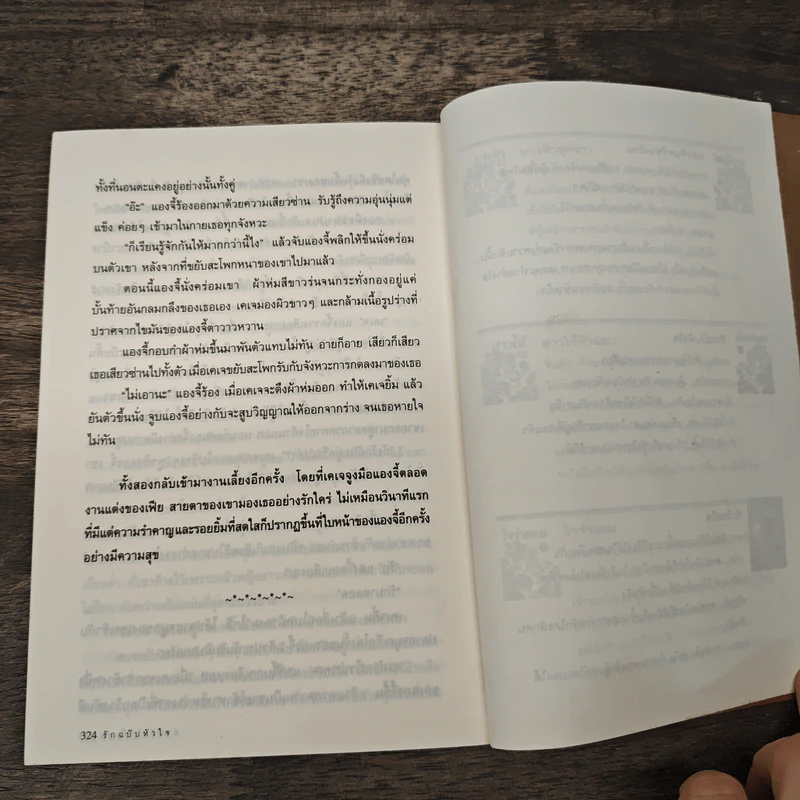 ทั้งที่นอนตะแคงอยู่อย่างนั้นทั้งคู่
"อ๊ะ" แองจี้ร้องออกมาด้วยความเสียวซ่าน รับรู้ถึงความอุ่นนุ่มแต่
แข็ง ค่อยๆ เข้ามาในกายเธอทุกจังหวะ
"ก็เรียนรู้จักกันให้มากกว่านี้ไง" แล้วจับแองจี้พลิกให้ขึ้นนั่งคร่อม
บนตัวเขา หลังจากที่ขยับสะโพกหนาของเขาไปมาแล้ว
ตอนนี้แองจี้นั่งคร่อมเขา ผ้าห่มสีขาวร่นจนกระทั่งกองอยู่แค่
บั้นท้ายอันกลมกลึงของเธอเอง เคเจมองผิวขาวๆ และกล้ามเนื้อรูปร่างที่
ปราศจากไขมันของแองจี้ตาวาวหวาน
แองจี้กอบกำผ้าห่มขึ้นมาพันตัวแทบไม่ทัน อายก็อาย เสียวก็เสียว
เธอเสียวซ่านไปทั้งตัว เมื่อเคเจขยับสะโพกรับกับจังหวะการกดลงมาของเธอ
"ไม่เอานะ" แองจี้ร้อง เมื่อเคเจจะดึงผ้าห่มออก ทำให้เคเจยิ้ม แล้ว
ยันตัวขึ้นนั่ง จูบแองจี้อย่างกับจะสูบวิญญาณให้ออกจากร่าง จนเธอหายใจ
ไม่ทัน
ทั้งสองกลับเข้ามางานเลี้ยงอีกครั้ง โดยที่เคเจจูงมือแองจี้ตลอด
งานแต่งของเฟีย สายตาของเขามองเธออย่างรักใคร่ ไม่เหมือนวินาทีแรก
ที่มีแต่ความรำคาญและรอยยิ้มที่สดใสก็ปรากฏขึ้นที่ใบหน้าของแองจี้อีกครั้ง
อย่างมีความสุข
~*~*~*~*~*~
324 รักฉบับหัวใจ